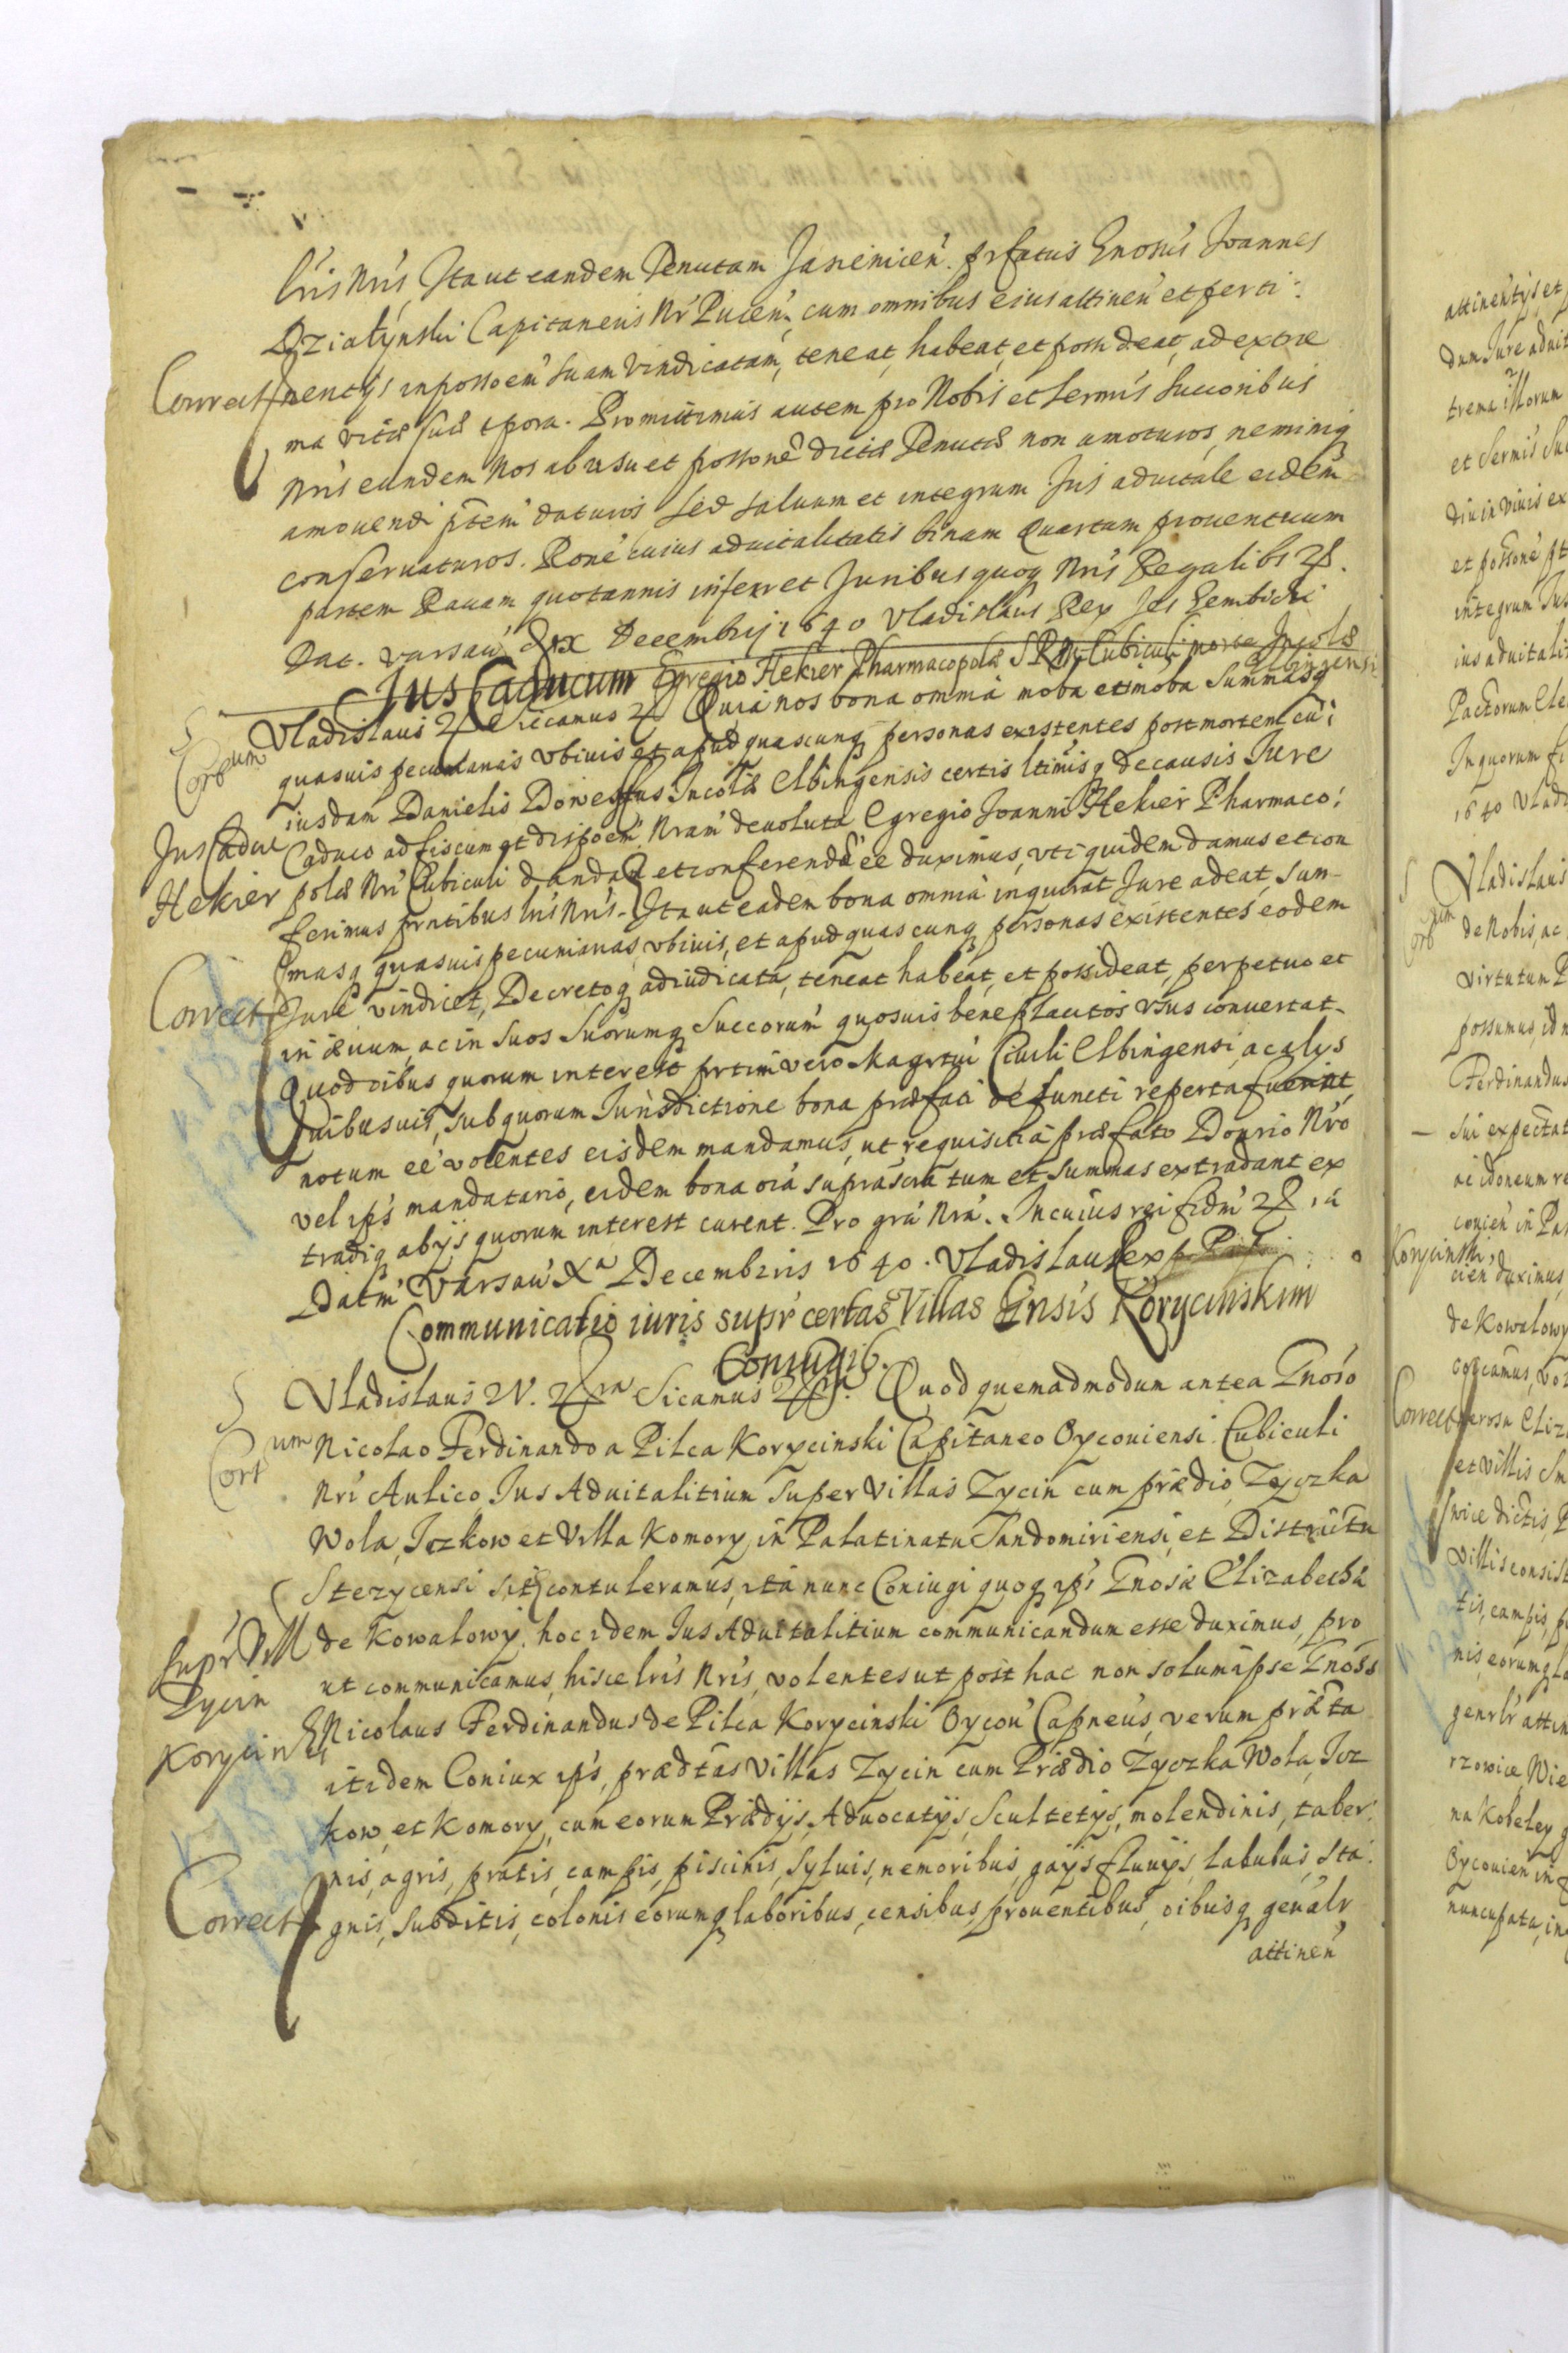 lris Nris, Ita ut eandem Tenutam Jasienicen. prfatus Gnosus Joannes
Działynski Capitaneus Nr Pucen, cum omnibus eius attinen et perti
nentys in possoem suam vindicatam, teneat, habeat, et possideat, ad extre
ma vitæ suæ tpora. Promittimus autem pro Nobis et Sermis Succoribus
Nris eundem Nos ab usu et possone dictæ Tenutæ non amoturos, neminiq
amovendi ptem daturos sed saluam et integrum Jus aduitale eidem
conseruaturos. Rone cuius aduitalitatis binam Quartam prouentuum
partem Rauam quotannis inferret Juribus quoq Nris Regalibs
Dat. Varsaw Decembrij 1640 Vladislaus Rex Gembicki
Jus Caducum Egregio Hekier Pharmacopolæ S R M Cubiculi Incolæ
Elbingensi
Vladislaus Siccanus Quia nos bona omnia moba et imoba Summasq
quasuis pecuniarias vbiuis et apud quascunq personas existentes post mortem cu
iusdam Danielis Incolæ Elbingensis certis ltimisq de causis Jure
Caduco ad fiscum et dispoem Nram deuoluta Egregio Joanni Hekier Pharmaco
polæ Nri Cubiculi danda et conferenda ee duximus, uti quidem damus et con
ferimus prntibus lris Nris. Ita ut eadem bona omnia inquirat Jure adeat, Sum
masq quasuis pecuniarias, vbiuis, et apud quascunq personas existentes eodem
Jure vindicet, Decretoq adiudicata, teneat habeat, et possideat, perpetuo et
in æuum, ac in suos Suorumq Succorum quosuis beneplacitos vsus conuertat.
Quod oibus quorum interest prtim vero Magrtui Ciuili Elbingensi, ac alys
quibusuis, sub quorum Jurisdictione bona præfati defuncti reperta fuerint
notum ee volentes eisdem mandamus, ut requisiti a præfato Donrio Nro
vel ips mandatario, eidem bona oia tum et Summas extradant ex
tradiq ab ijs quorum interest curent. Pro gra Nra. In cuius rei fidm
Datm Varsaw Xa Decembris 1640. Vladislaus Rex
Communicatio iuris supr certas Villas Gnsis Korycinskim
Coniugib.
Vladislaus IV. Sicamus Quod quemadmodum antea Gnoso
Nicolao Ferdinando a Pilca Korycinski Capitaneo Oycouiensi Cubiculi
Nri Aulico Jus Aduitalitium super Villas Zycin cum prædio, Zyczka
Wola, Jozkow et Villa Komory in Palatinatu Sandomiriensi, et Districtu
Stezycensi contuleramus, ita nunc Coniugi quoq ips Gnosæ Elizabecha
de Kowalowy, hoc idem Jus Aduitalitium communicandum esse duximus, pro
ut communicamus, hisce lris Nris, volentes ut post hac non solum ipse Gnoss
Nicolaus Ferdinandus de Pilca Korycinski Oycou Capneus, verum præta
itidem Coniux ips, prædtas Villas Zycin cum Prædio Zyczka Wola, Joz
kow, et Komory, cum eorum Prædijs, Aduocatijs, Scultetys, molendinis, taber
nis, agris, pratis, campis, piscinis, syluis, nemoribus, gays fluuijs, labubus, sta
gnis, subditis, colonis eorumq laboribus, censibus, prouentibus, oibusq genalr
attinen
Correct
Corum
Jus Caduc
Hekier
Correct
Supr Vill
Zycin
Korycinski
Correct
attinentijs et
dum Jure aduit
trema illorum
et Sermis Suc
diu in viuis ex
et possone
integrum Jus
ius aduitali
Pactorum
In quorum fi
1640 Vlad
Vladislaus
de Nobis, ac
virtutum
possumus, id
Ferdinandus
sui expectat
ac idoneum re
Korycinski
cien duximus
de Kowalowy
Correct
et villis
wice dictis,
villis consist
tis, campis,
nis, eorumq la
genrlr attin
rzowice, Wie
na Kobeley
Oycouien in
nuncupata, in